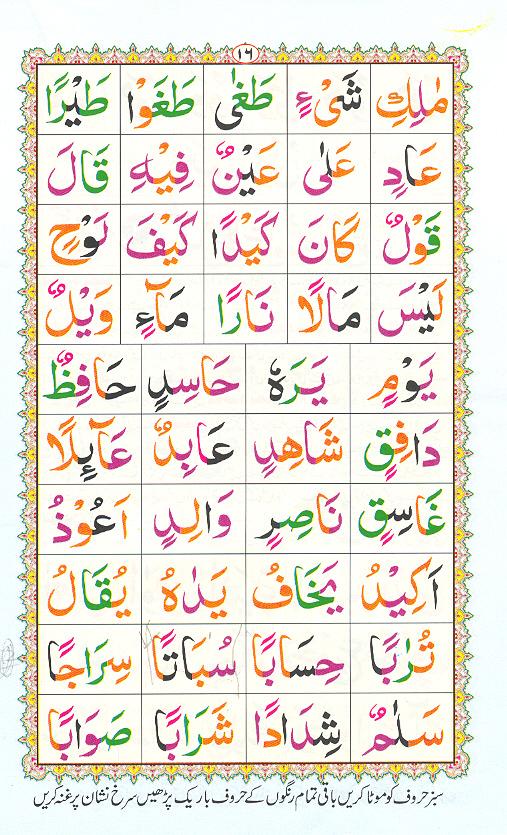 ١٦
مٰلِكِ شَىْءٍ طَغٰى طَغَوْا طَيْرًا
عَادٍ عَلٰى عَيْنٌ فِيْهِ قَالَ
قَوْلٌ كَانَ كَيْدًا كَيْفَ لَوْحٍ
لَيْسَ مَالًا نَارًا مَآءٍ وَيْلٌ
يَوْمٍ يَرَهٗ حَاسِدٍ حَافِظٌ
دَافِقٍ شَاهِدٍ عَابِدٌ عَآئِلًا
غَاسِقٍ نَاصِرٍ وَالِدٍ اَعُوْذُ
اَكِيْدُ يَخَافُ يَدٰهُ يُقَالُ
تُرٰبًا حِسَابًا سُبَاتًا سِرَاجًا
سَلٰمٌ شِدَادًا شَرَابًا صَوَابًا
سبز حروف کو موٹا کریں باقی تمام رنگوں کے حروف باریک پڑھیں سرخ نشان پر غنہ کریں